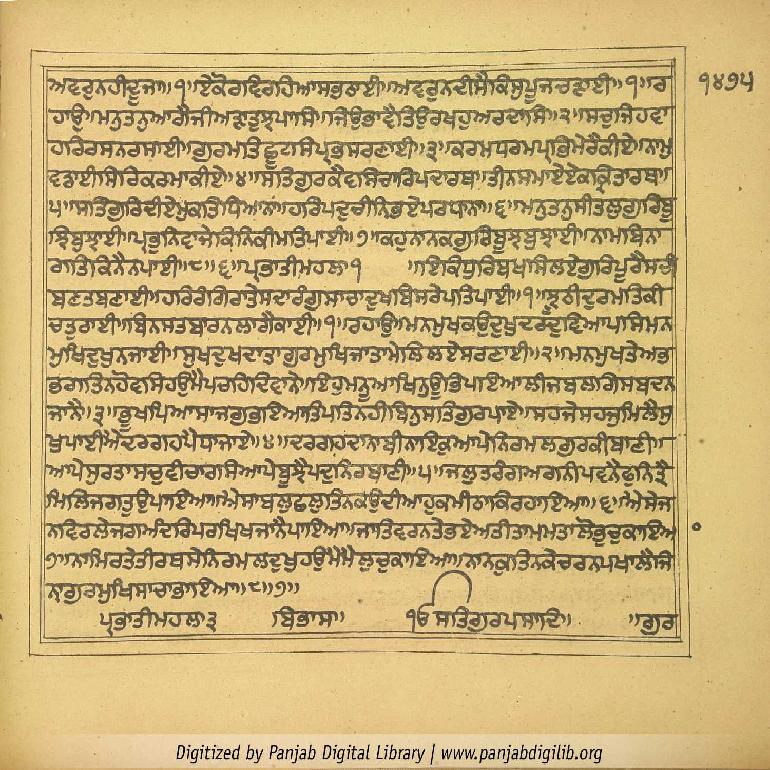 ਅਵਰੁਨਹੀਦੂਜਾ॥੧॥ਏਕੋਰਵਿਰਹਿਆਸਭਠਾਈ॥ਅਵਰੁਨਦੀਸੈਕਿਸੁਪੂਜਚੜਾਈ॥੧॥ਰ
ਹਾਉ॥ਮਨੁਤਨੁਆਗੈਜੀਅੜਾਤੁਝਪਾਸਿ॥ਜਿਉਭਾਵੈਤਿਉਰਖਹੁਅਰਦਾਸਿ॥੨॥ਸਚੁਜਿਹਵਾ
ਹਰਿਰਸਨਰਸਾਈ॥ਗੁਰਮਤਿਛੂਟਸਿਪ੍ਰਭਸਰਣਾਈ॥੩॥ਕਰਮਧਰਮਪ੍ਰਭਿਮੇਰੈਕੀਏ॥ਨਾਮੁ
ਵਡਾਈਸਿਰਿਕਰਮਾਕੀਏ॥੪॥ਸਤਿਗੁਰਕੈਵਸਿਚਾਰਿਪਦਾਰਥ॥ਤੀਨਸਮਾਏਏਕਕ੍ਰਿਤਾਰਥ॥
੫॥ਸਤਿਗੁਰਿਦੀਏਮੁਕਤਿਧਿਆਨਾ॥ਹਰਿਪਦੁਚੀਨਿਭਏਪਰਧਾਨਾ॥੬॥ਮਨੁਤਨੁਸੀਤਲੁਗੁਰਿਬੂ
ਝਬੁਝਾਈ॥ਪ੍ਰਭੁਨਿਵਾਜੇਕਿਨਿਕੀਮਤਿਪਾਈ॥੭॥ਕਹੁਨਾਨਕਗੁਰਿਬੂਝਬੁਝਾਈ॥ਨਾਮਬਿਨਾ
ਗਤਿਕਿਨੈਨਪਾਈ॥੮॥੬॥ਪ੍ਰਭਾਤੀਮਹਲਾ੧ ॥ਇਕਿਧੁਰਿਬਖਸਿਲਏਗੁਰਿਪੂਰੈਸਚੀ
ਬਣਤਬਣਾਈ॥ਹਰਿਰੰਗਿਰਾਤੇਸਦਾਰੰਗੁਸਾਚਾਦੁਖਬਿਸਰੇਪਤਿਪਾਈ॥੧॥ਝੂਠੀਦੁਰਮਤਿਕੀ
ਚਤੁਰਾਈ॥ਬਿਨਸਤਬਾਰਨਲਾਗੈਕਾਈ॥੧॥ਰਹਾਉ॥ਮਨਮੁਖਕਉਦੁਖੁਦਰਦੁਵਿਆਪਸਿਮਨ
ਮੁਖਿਦੁਖੁਨਜਾਈ॥ਸੁਖਦੁਖਦਾਤਾਗੁਰਮੁਖਿਜਾਤਾਮੇਲਿਲਏਸਰਣਾਈ॥੨॥ਮਨਮੁਖਤੇਅਭ
ਭਗਤਿਨਹੋਵਸਿਹਉਮੈਪਚਹਿਦਿਵਾਨੇ॥ਇਹੁਮਨੂਆਖਿਨੁਊਭਿਪਇਆਲੀਜਬਲਗਿਸਬਦਨ
ਜਾਨੇ॥੩॥ਭੂਖਪਿਆਸਾਜਗੁਭਇਆਤਿਪਤਿਨਹੀਬਿਨੁਸਤਿਗੁਰਪਾਏ॥ਸਹਜੈਸਹਜੁਮਿਲੈਸੁ
ਖੁਪਾਈਐਦਰਗਹਪੈਧਾਜਾਏ॥੪॥ਦਰਗਹਦਾਨਾਬੀਨਾਇਕੁਆਪੇਨਿਰਮਲਗੁਰਕੀਬਾਣੀ॥
ਆਪੇਸੁਰਤਾਸਚੁਵੀਚਾਰਸਿਆਪੇਬੂਝੈਪਦੁਨਿਰਬਾਣੀ॥੫॥ਜਲੁਤਰੰਗਅਗਨੀਪਵਨੈਫੁਨਿਤ੍ਰੈ
ਮਿਲਿਜਗਤੁਉਪਾਇਆ॥ਐਸਾਬਲੁਛਲੁਤਿਨਕਉਦੀਆਹੁਕਮੀਠਾਕਿਰਹਾਇਆ॥੬॥ਐਸੇਜ
ਨਵਿਰਲੇਜਗਅੰਦਰਿਪਰਖਿਖਜਾਨੈਪਾਇਆ॥ਜਾਤਿਵਰਨਤੇਭਏਅਤੀਤਾਮਮਤਾਲੋਭੁਚੁਕਾਇਆ
੭॥ਨਾਮਿਰਤੇਤੀਰਥਸੇਨਿਰਮਲਦੁਖੁਹਉਮੈਮੈਲੁਚੁਕਾਇਆ॥ਨਾਨਕੁਤਿਨਕੇਚਰਨਪਖਾਲੈਜਿ
ਨਾਗੁਰਮੁਖਿਸਾਚਾਭਾਇਆ॥੮॥੭॥
ਪ੍ਰਭਾਤੀਮਹਲਾ੩ ਬਿਭਾਸ॥ ੴਸਤਿਗੁਰਪ੍ਰਸਾਦਿ॥ ॥ਗੁਰ
੧੪੭੫
Digitized by Panjab Digital Library | www.panjabdigilib.org